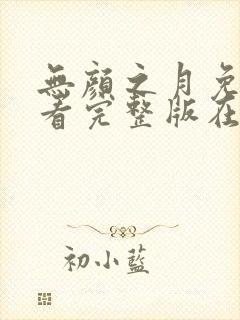 無顏之月免
看完整版在
初小藍